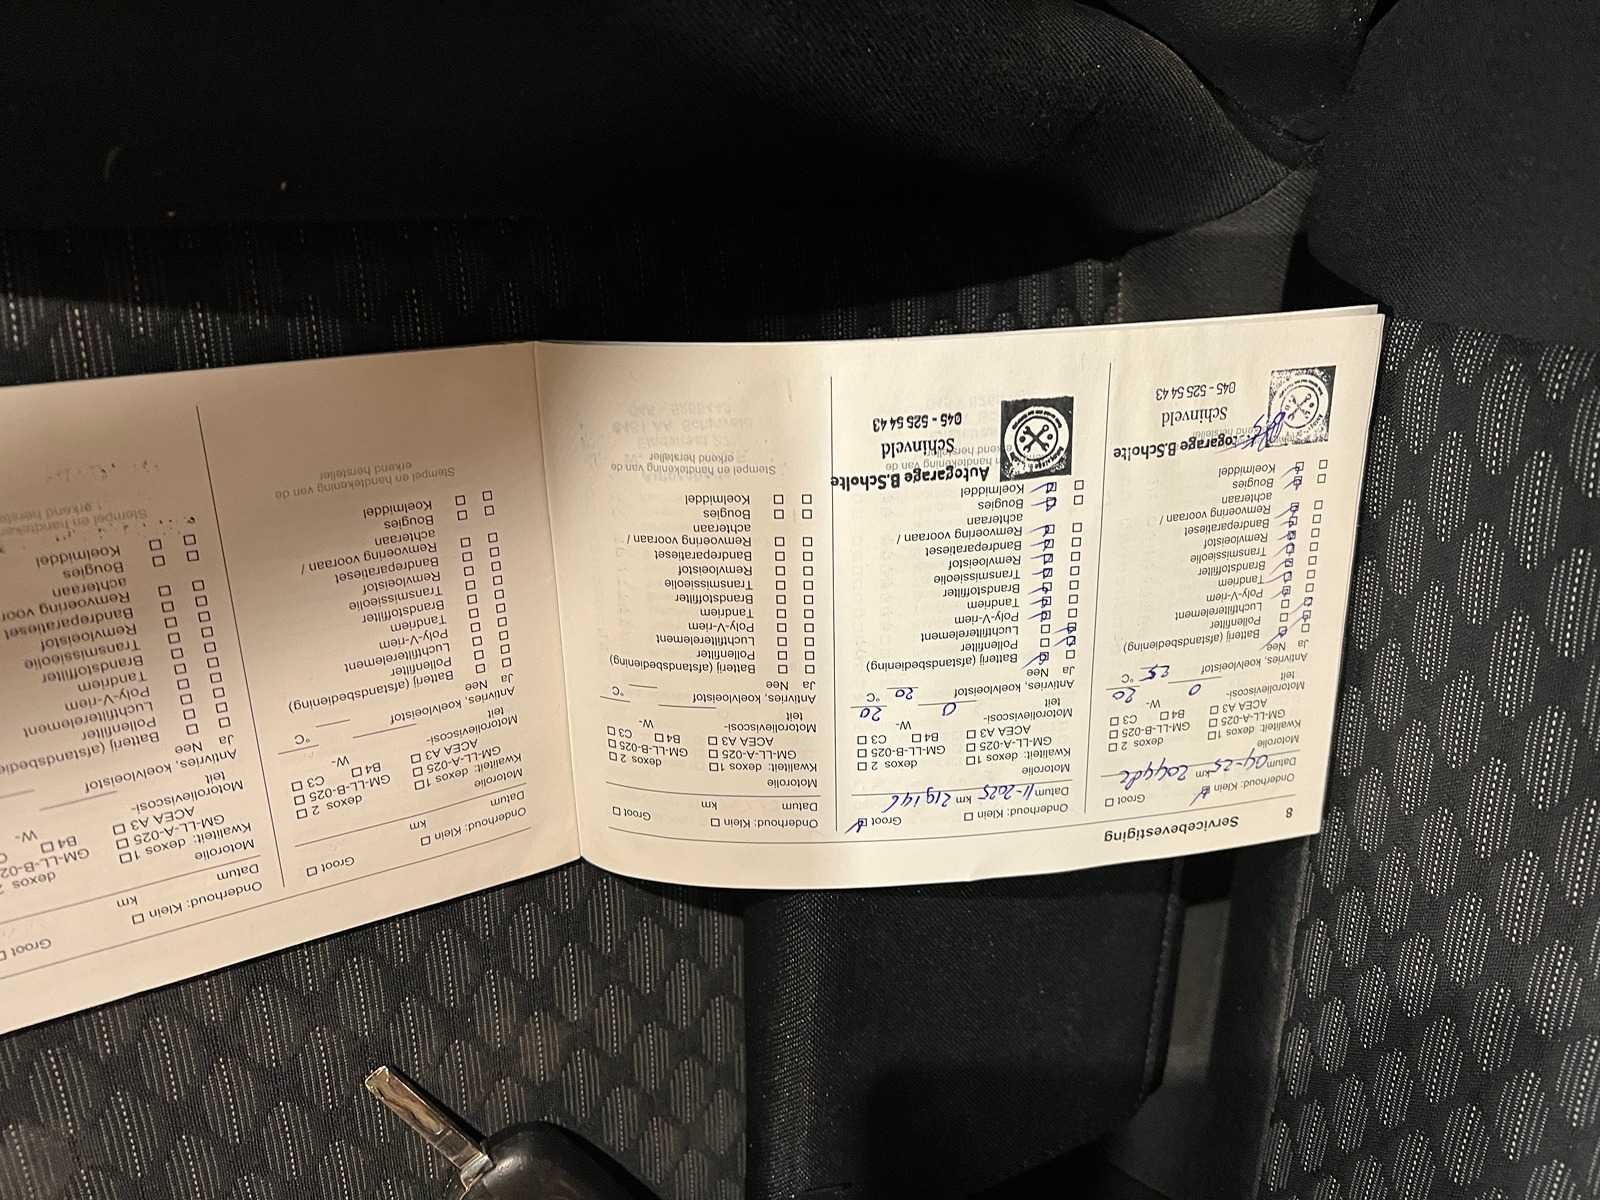 8
Servicebevestiging
Onderhoud: Klein Groot
Datum 04-25 km
Motorolie
Kwaliteit: dexos 1 dexos 2
GM-LL-A-025 GM-LL-B-025
ACEA A3 B4 C3
Motorolieviscosi- 0 W- 20
teit
Antivries, koelvloeistof 25 °C
Ja Nee
Batterij (afstandsbediening)
Pollenfilter
Luchtfilterelement
Poly-V-riem
Tandriem
Brandstoffilter
Transmissieolie
Remvloeistof
Bandreparatieset
Remvoering vooraan /
achteraan
Bougies
Koelmiddel
Autogarage B.Scholte
Schinveld
045 - 525 54 43
Onderhoud: Klein Groot
Datum 11-2025 km 219146
Motorolie
Kwaliteit: dexos 1 dexos 2
GM-LL-A-025 GM-LL-B-025
ACEA A3 B4 C3
Motorolieviscosi- 0 W- 20
teit
Antivries, koelvloeistof 20 °C
Ja Nee
Batterij (afstandsbediening)
Pollenfilter
Luchtfilterelement
Poly-V-riem
Tandriem
Brandstoffilter
Transmissieolie
Remvloeistof
Bandreparatieset
Remvoering vooraan /
achteraan
Bougies
Koelmiddel
Autogarage B.Scholte
Schinveld
045 - 525 54 43
Onderhoud: Klein Groot
Datum km
Motorolie
Kwaliteit: dexos 1 dexos 2
GM-LL-A-025 GM-LL-B-025
ACEA A3 B4 C3
Motorolieviscosi- W-
teit
Antivries, koelvloeistof °C
Ja Nee
Batterij (afstandsbediening)
Pollenfilter
Luchtfilterelement
Poly-V-riem
Tandriem
Brandstoffilter
Transmissieolie
Remvloeistof
Bandreparatieset
Remvoering vooraan /
achteraan
Bougies
Koelmiddel
Stempel en handtekening van de
erkend hersteller
Onderhoud: Klein Groot
Datum km
Motorolie
Kwaliteit: dexos 1 dexos 2
GM-LL-A-025 GM-LL-B-025
ACEA A3 B4 C3
Motorolieviscosi- W-
teit
Antivries, koelvloeistof °C
Ja Nee
Batterij (afstandsbediening)
Pollenfilter
Luchtfilterelement
Poly-V-riem
Tandriem
Brandstoffilter
Transmissieolie
Remvloeistof
Bandreparatieset
Remvoering vooraan /
achteraan
Bougies
Koelmiddel
Stempel en handtekening van de
erkend hersteller
Onderhoud: Klein Groot
Datum km
Motorolie
Kwaliteit: dexos 1 dexos 2
GM-LL-A-025 GM-LL-B-02
ACEA A3 B4 C
Motorolieviscosi- W-
teit
Antivries, koelvloeistof
Ja Nee
Batterij (afstandsbedie
Pollenfilter
Luchtfilterelement
Poly-V-riem
Tandriem
Brandstoffilter
Transmissieolie
Remvloeistof
Bandreparatieset
Remvoering voor
achteraan
Bougies
Koelmiddel
Stempel en handteken
erkend herstelle